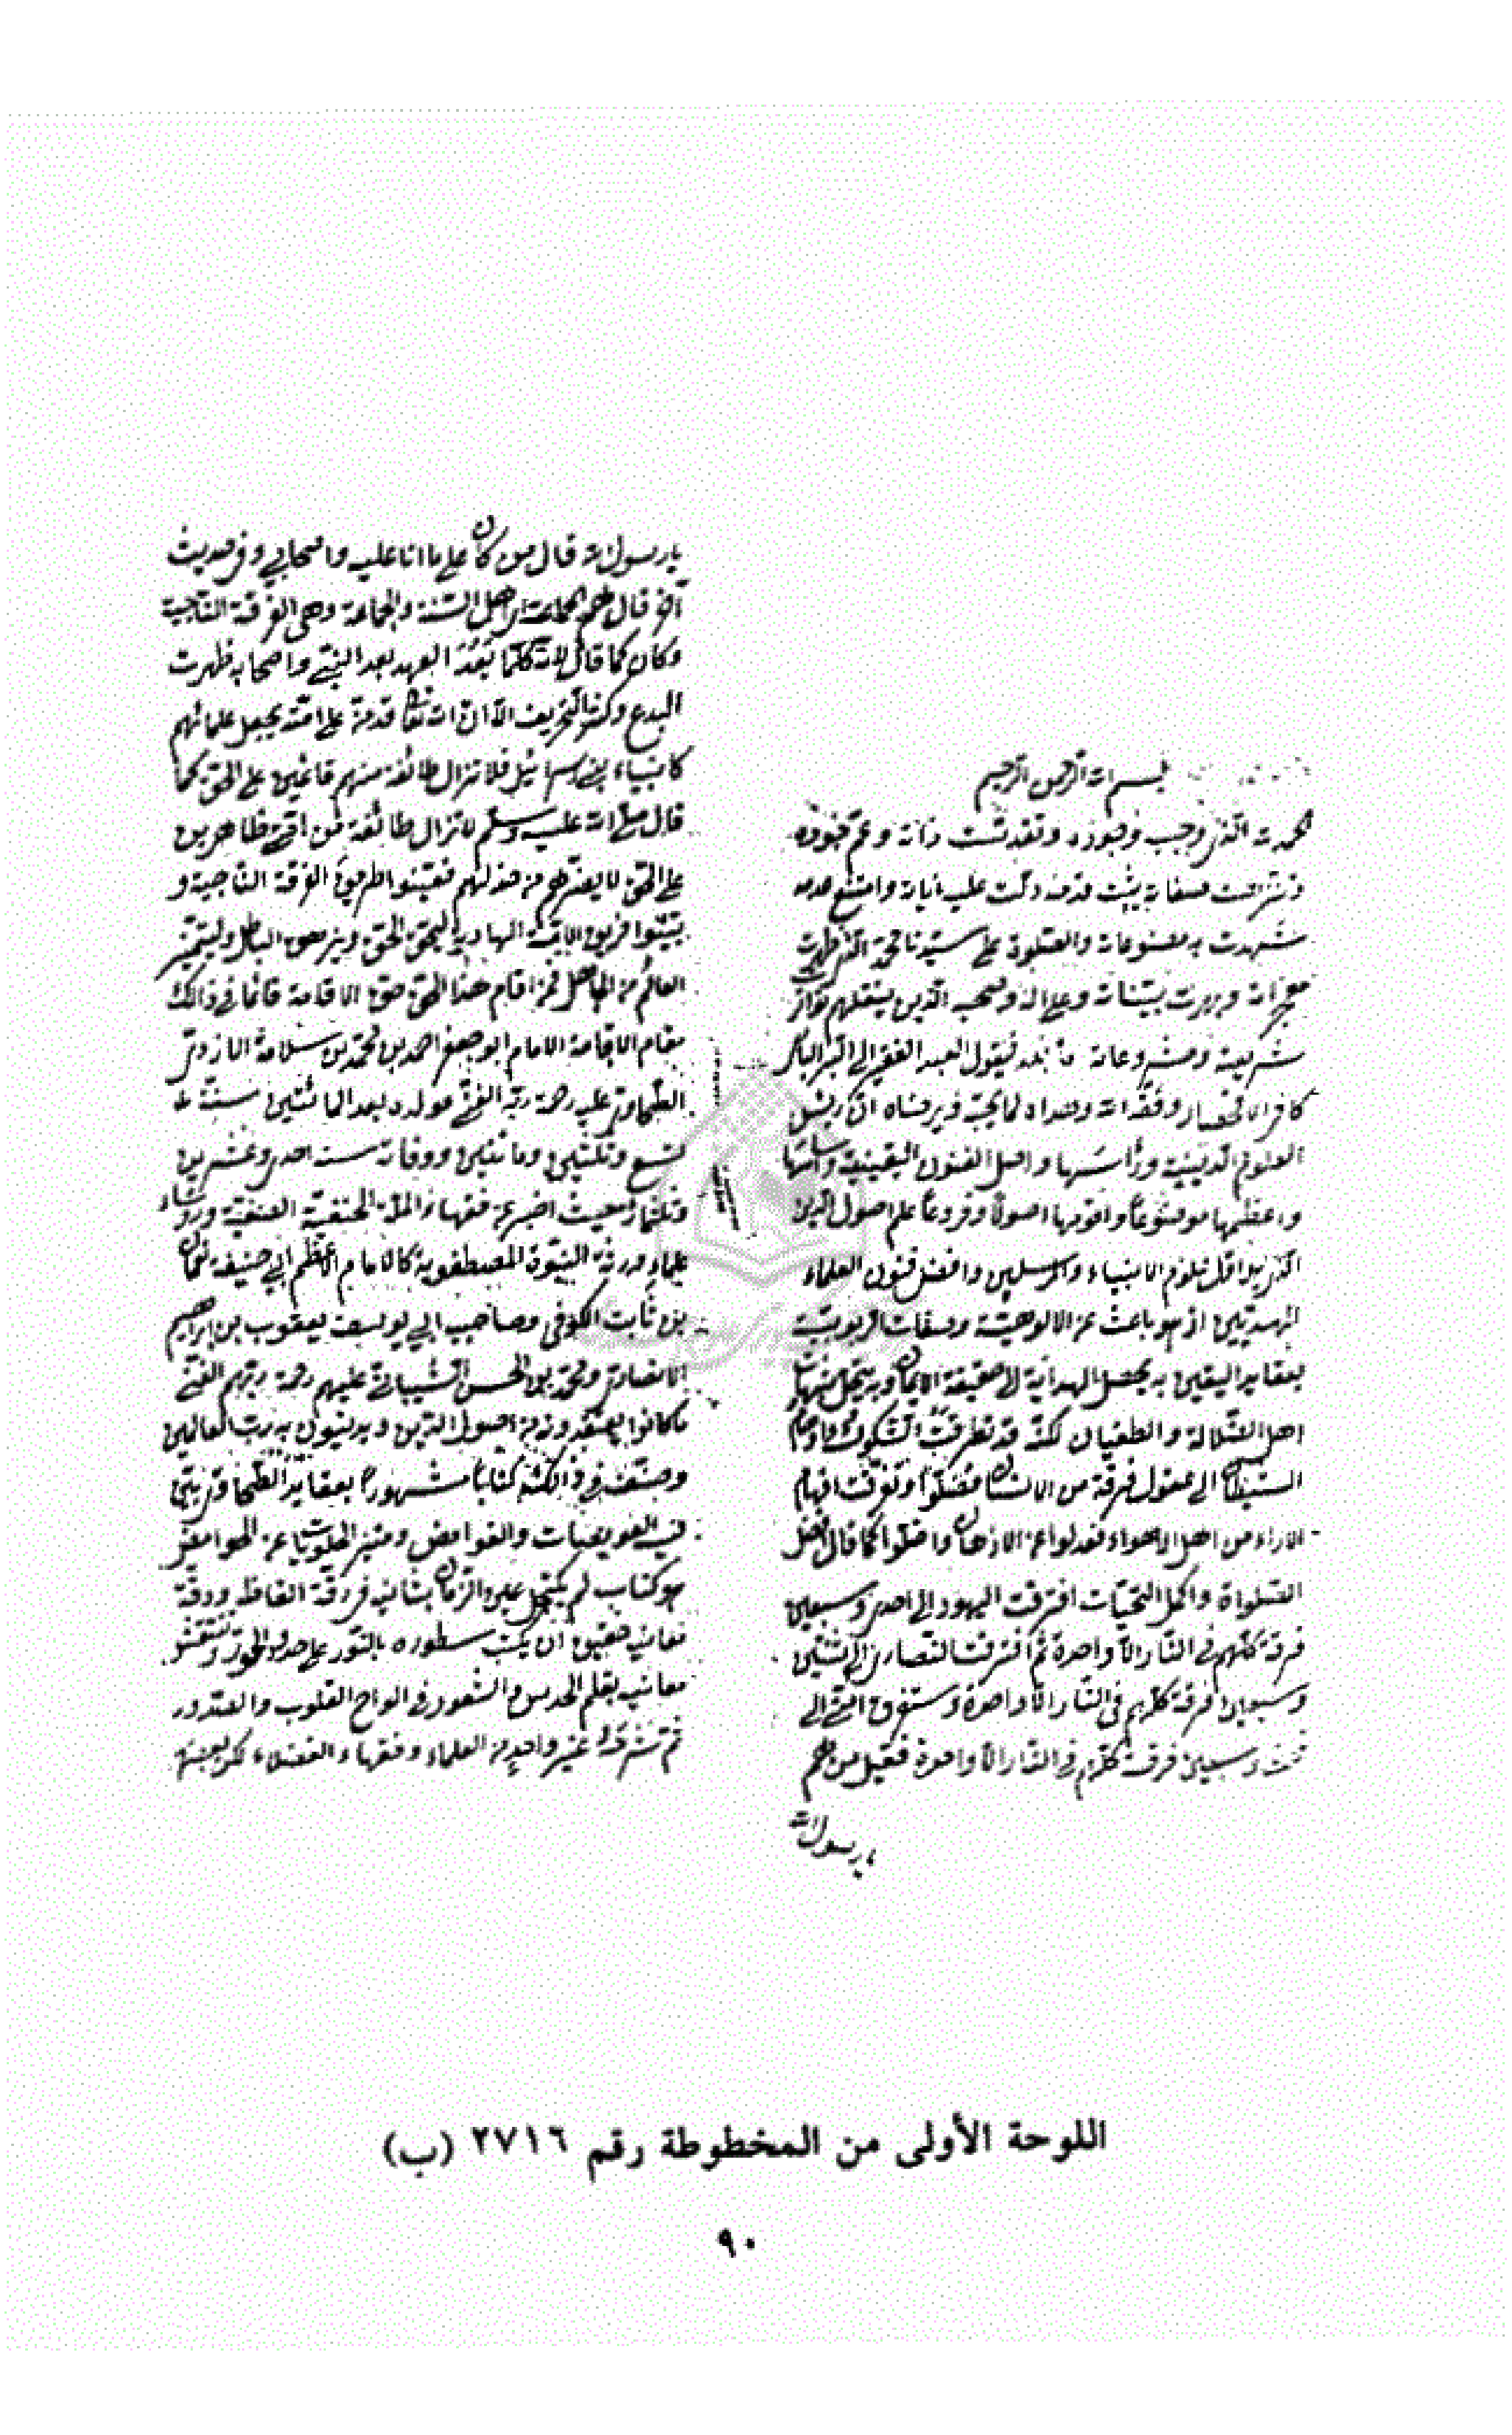 بسم الله الرحمن الرحيم
الحمد لله الذي وجب وجوده وتقدست ذاته وعم جوده
وتنزهت صفاته يثبت قدمه دلت عليه اياته وامتنع عدمه
شهدت به مصنوعاته والصلوة على سيدنا محمد الذي ظهرت
معجزاته وبهرت بيناته وعلى اله وصحبه الذين بنقلهم تواتر
شريعته ومشروعاته فيقول العبد الفقير الى البر الباري
كافي الاقحصاري وفقه الله وهداه لما يحبه ويرضاه ان رئيس
العلوم الدينية ورأسها واصل الفنون اليقينية واساسها
واعظمها موضوعا واقومها اصولا وفروعا علم اصول الدين
الذي هو اجل علوم الانبياء والمرسلين وافضل فنون العلماء
المهديين اذ هو باحث عن الالوهية وصفات الربوبية
بعقايد اليقين به يحصل الهداية الى حقيقة الايمان وبه ينجلي شبهات
اهل الضلالة والطغيان لكنه قد تطرقت الشكوك
الشيطان الى عقول فرقة من الانسان فضلوا وتفرقت افهام
الاراء من اهل الاهواء فعدلوا عن الاذعان واضلوا كما قال افضل
الصلواة واكمل التحيات افترقت اليهود الى احدى وسبعين
فرقة كلهم في النار الا واحدة ثم افترقت النصارى الى ثنتين
وسبعين فرقة كلهم في النار الا واحدة وستفرق امتي الى
ثلث وسبعين فرقة كلهم في النار الا واحدة فقيل من هم
يا رسول الله
يا رسول الله قال من كان على ما انا عليه واصحابي وفي حديث
آخر قال هم الجماعة اي اهل السنة والجماعة وهي الفرقة الناجية
وكان كما قال لانه كلما بعد العهد بعد النبي واصحابه ظهرت
البدع وكثر التحريف الا ان الله تعالى قد من على امته بجعل علمائهم
كانبياء بني اسرائيل فلا تزال طائفة منهم قائمين على الحق كما
قال صلى الله عليه وسلم لا تزال طائفة من امتي ظاهرين
على الحق لا يضرهم من خذلهم فعينوا طريق الفرقة الناجية و
بينوا فريق الابقية الهادية ليحق الحق ويزهق الباطل وليتميز
العالم من الجاهل فمن اقام هذا الحق حق الاقامة قائما في ذالك
مقام الاقامة الامام ابو جعفر احمد بن محمد بن سلامة الازدي
الطحاوي عليه رحمة ربه الغني مولده بعد المائتين سنة
تسع وثلثين ومائتين ووفاته سنة احدى وعشرين
وثلثمائة حيث اخبر عن فقهاء الملة الحنفية الحنيفية ورؤساء
علماء ورثة النبوة المصطفوية كالامام الاعظم ابي حنيفة نعمان
بن ثابت الكوفي وصاحبيه ابي يوسف يعقوب بن ابراهيم
الانصاري ومحمد بن الحسن الشيباني عليهم رحمة ربهم الغني
ما كانوا يعتقدونه من اصول الدين ويدينون به رب العالمين
وصنف في ذالك كتابا مشهورا بعقايد الطحاوي بين
فيه العويصات والغوامض وميز الحلويات عن الحوامض
هو كتاب لم يكتحل عين الزمان بثانيه في رقة الفاظه ودقة
معانيه حقيق ان يكتب سطوره بالنور على خدود الحور وينتقش
معانيه بقلم الحدس والشعور في الواح القلوب والصدور
ثم شرحه غير واحد من العلماء وفقهاء الفضلاء لكن بعضه
اللوحة الأولى من المخطوطة رقم ٢٧١٦ (ب)
٩٠